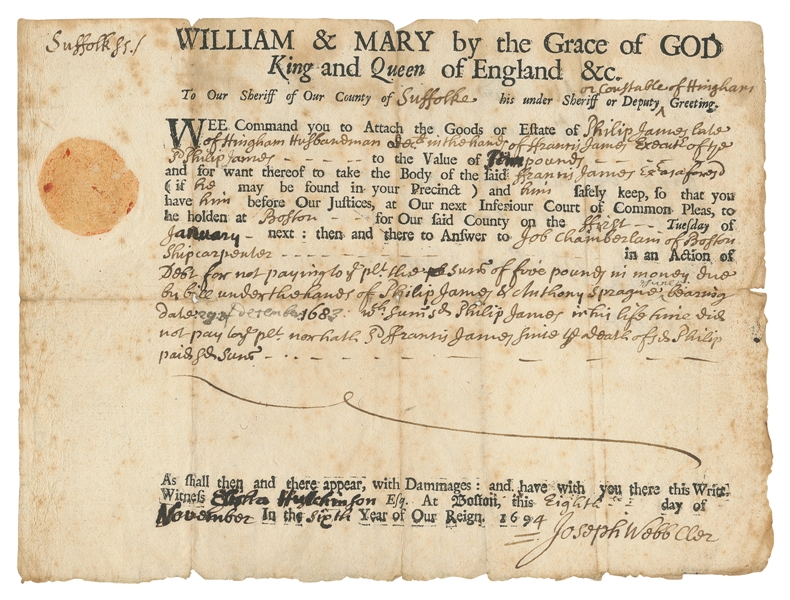 Suffolk ss./
WILLIAM & MARY by the Grace of GOD
King and Queen of England &c.
or Constable of Hingham
To Our Sheriff of Our County of Suffolke his under Sheriff or Deputy ^ Greeting.
WEE Command you to Attach the Goods or Estate of Philip James late
of Hingham Husbandman in the hands of ffrancis James Execut of ye
sd Philip James - - - - - to the Value of Tenn pounds - - - - -
and for want thereof to take the Body of the said ffrancis James Exr as aforesd
( if he may be found in your Precinct ) and him safely keep, so that you
have him before Our Justices, at Our next Inferiour Court of Common Pleas, to
be holden at Boston - - - for Our said County on the ffirst - - - Tuesday of
January - next : then and there to Answer to Job Chamberlain of Boston
Shipcarpenter - - - - - in an Action of
Debt for not paying to ye plt. the sum of five pounds in money due
by bill under the hands of Philip James & Anthony Sprague bearing
date of December 1683: wch sum sd Philip James in his life time did
not pay to ye plt. nor hath sd ffrancis James since ye death of sd Philip
paid sd sum - - - - -
As shall then and there appear, with Dammages : and have with you there this Writt.
Witness Elisha Hutchinson Esq. At Boston, this Eighth day of
November In the Sixth Year of Our Reign. 1694
Joseph Webb Cler